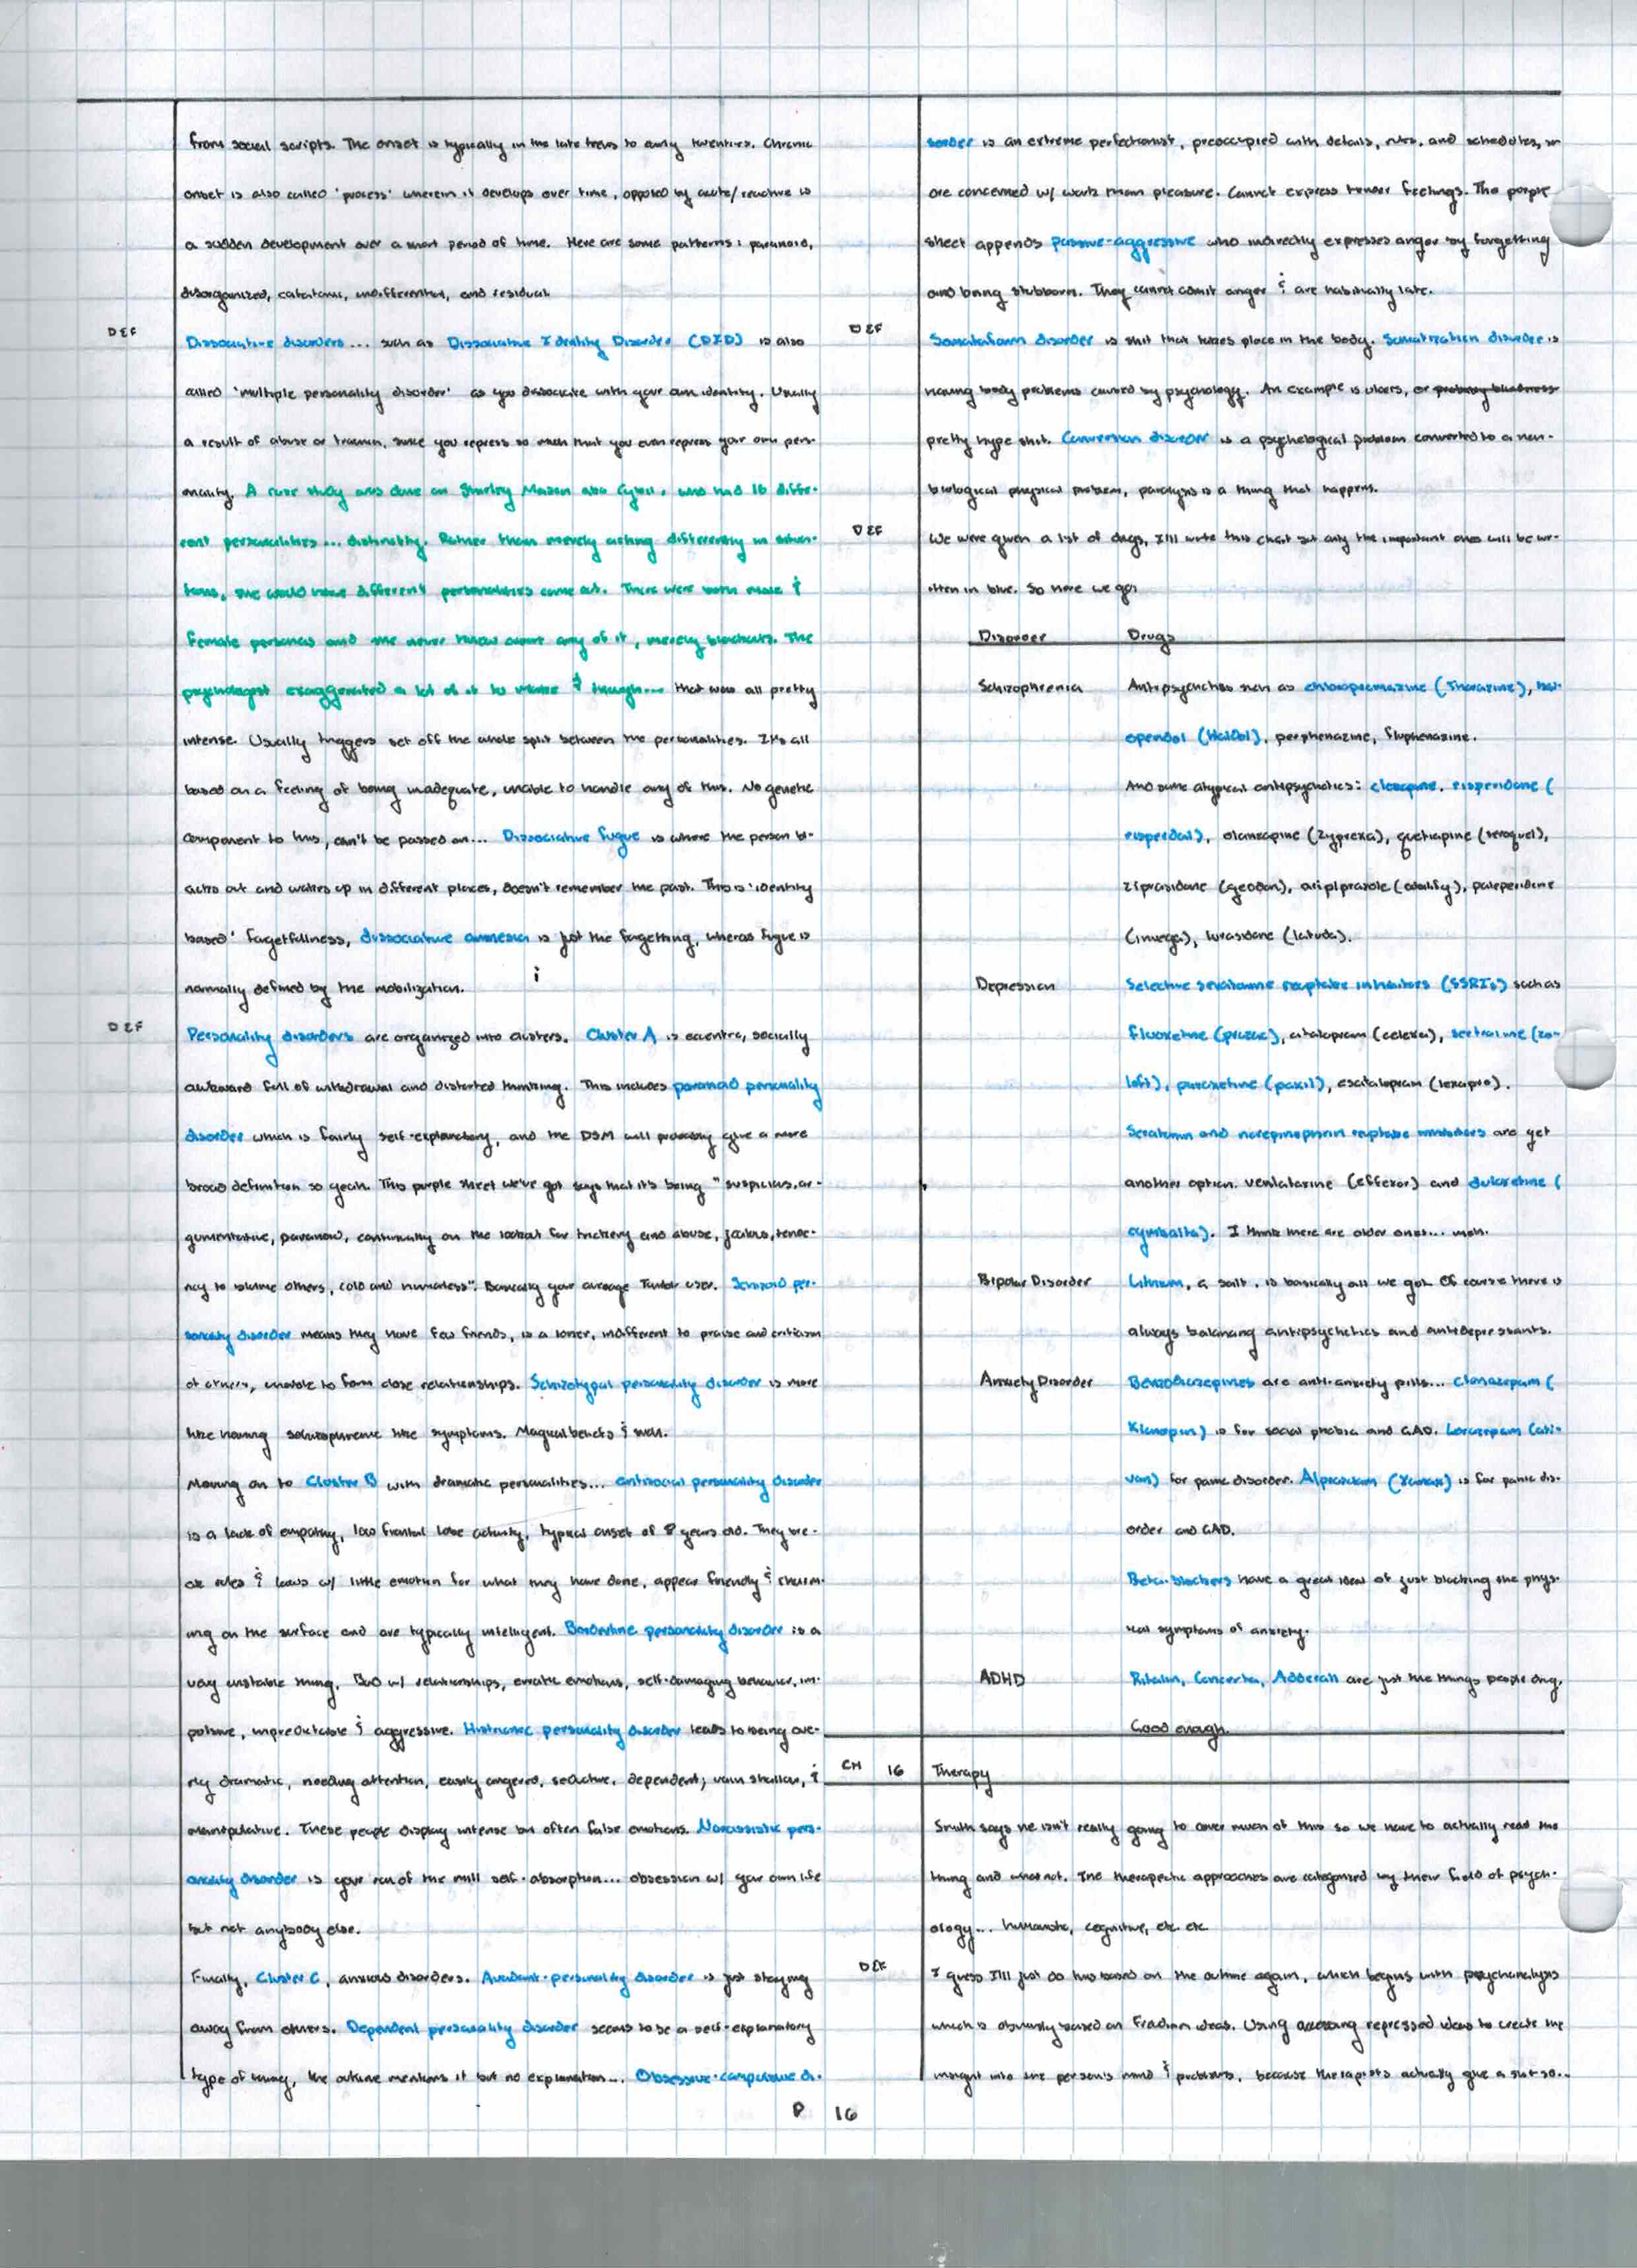 from social scripts. The onset is typically in the late teens to early twenties. Chronic
onset is also called 'process' wherein it develops over time, opposed by acute/reactive is
a sudden development over a short period of time. Here are some patterns: paranoid,
disorganized, catatonic, undifferentiated, and residual
DEF
Dissociative disorders... such as Dissociative Identity Disorder (DID) is also
called 'multiple personality disorder' as you dissociate with your own identity. Usually
a result of abuse or trauma, since you repress so much that you even repress your own pers-
onality. A case study was done on Shirley Mason aka Cybil, who had 16 diffe-
rent personalities... distinctly. Rather than merely acting differently in situa-
tions, she would have different personalities come out. There were both male &
female personas and she never knew about any of it, merely blackouts. The
psychologist exaggerated a lot of it to make $ though... that was all pretty
intense. Usually triggers set off the whole split between the personalities. It's all
based on a feeling of being inadequate, unable to handle any of this. No genetic
component to this, can't be passed on... Dissociative fugue is where the person bl-
acks out and wakes up in different places, doesn't remember the past. This is 'identity
based' forgetfullness, dissociative amnesia is just the forgetting, wheras fugue is
normally defined by the mobilization.
DEF
Personality disorders are organized into clusters. Cluster A is eccentric, socially
awkward full of withdrawal and distorted thinking. This includes paranoid personality
disorder which is fairly self-explanatory, and the DSM will probably give a more
broad definition so yeah. This purple sheet we've got says that it's being "suspicious, ar-
gumentative, paranoid, continually on the lookout for trickery and abuse, jealous, tende-
ncy to blame others, cold and humorless". Basically your average Tumblr user. Schizoid per-
sonality disorder means they have few friends, is a loner, indifferent to praise and criticism
of others, unable to form close relationships. Schizotypal personality disorder is more
like having schizophrenic like symptoms. Magical beliefs &
Moving on to Cluster B with dramatic personalities... antisocial personality disorder
is a lack of empathy, low frontal lobe activity, typical onset of 8 years old. They bre-
ak rules & laws w/ little emotion for what they have done, appear friendly & charm-
ing on the surface and are typically intelligent. Borderline personality disorder is a
very unstable thing. Bad w/ relationships, erratic emotions, self-damaging behavior, im-
pulsive, unpredictable & aggressive. Histrionic personality disorder leads to being ove-
rly dramatic, needing attention, easily angered, seductive, dependent, vain shallow, &
manipulative. These people display intense but often false emotions. Narcissistic pers-
onality disorder is your run of the mill self-absorption... obsession w/ your own life
but not anybody else.
Finally, Cluster C, anxious disorders. Avoidant-personality disorder is just staying
away from others. Dependent personality disorder seems to be a self-explanatory
type of thing, the outline mentions it but no explanation... Obsessive-compulsive di-
sorder is an extreme perfectionist, preoccupied with details, rules, and schedules,
are concerned w/ work than pleasure. Cannot express tender feelings. The purple
sheet appends passive-aggressive who indirectly expresses anger by forgetting
and being stubborn. They cannot admit anger & are habitually late.
DEF
Somataform disorder is shit that takes place in the body. Somatization disorder is
having body problems caused by psychology. An example is ulcers, or probably blindness
pretty hype shit. Conversion disorder is a psychological problem converted to a non-
biological physical problem, paralysis is a thing that happens.
DEF
We were given a list of drugs, I'll write this chart but only the important ones will be wr-
itten in blue. So here we go:
Disorder Drugs
Schizophrenia Antipsychotics such as chloropromazine (Thorazine), hal-
operidol (Haldol), perphenazine, fluphenazine.
And some atypical antipsychotics: clozapine, risperidone (
risperdal), olanzapine (zyprexa), quetiapine (seroquel),
ziprasidone (geodon), aripiprazole (abilify), paliperidone
(invega), lurasidone (latuda).
Depression Selective serotonine reuptake inhibitors (SSRIs) such as
fluoxetine (prozac), citalopram (celexa), sertraline (zo-
loft), paroxetine (paxil), escitalopram (lexapro).
Serotonin and norepinephrin reuptake inhibitors are yet
another option. venlafaxine (effexor) and duloxetine (
cymbalta). I think there are older ones... meh.
Bipolar Disorder Lithium, a salt, is basically all we got. Of course there is
always balancing antipsychotics and antidepressants.
Anxiety Disorder Benzodiazepines are anti-anxiety pills... clonazepam (
Klonopin) is for social phobia and GAD. Lorazepam (ati-
van) for panic disorder. Alprazolam (Xanax) is for panic dis-
order and GAD.
Beta-blockers have a great ideal of just blocking the phys-
ical symptoms of anxiety.
ADHD Ritalin, Concerta, Adderall are just the things people drug.
Good enough.
CH 16 Therapy
Smith says he isn't really going to cover much of this so we have to actually read the
thing and whatnot. The therapeutic approaches are categorized by their field of psych-
ology... humanistic, cognitive, etc. etc.
DEF
I guess I'll just do this based on the outline again, which begins with psychanalysis
which is obviously based on Freudian ideas. Using repressed ideas to create the
insight into the person's mind & problems, because therapists actually give a shit so...
P 16